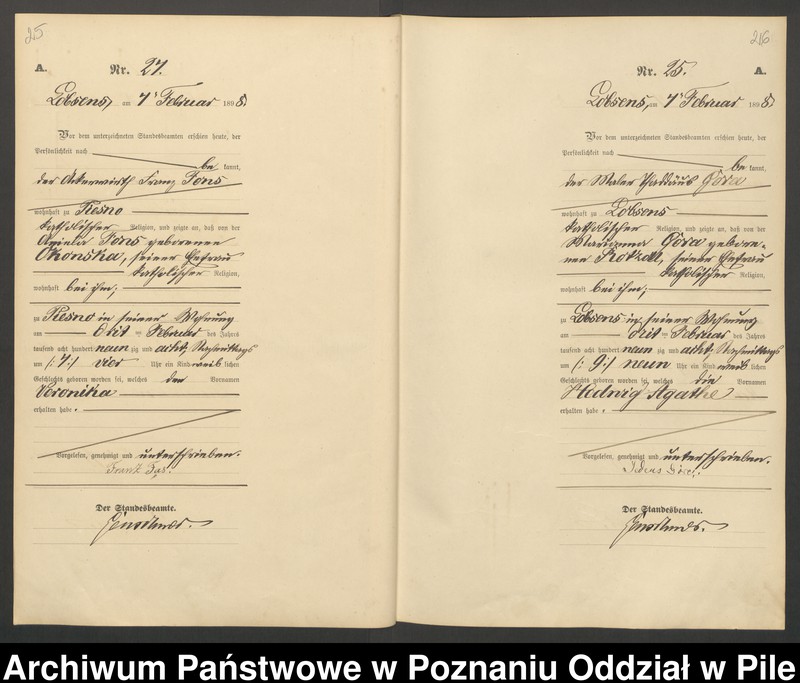 25
A. Nr. 24.
Lobsens, am 4ᵗ Februar 1898
Vor dem unterzeichneten Standesbeamten erschien heute, der
Persönlichkeit nach
be kannt,
der Ackerwirth Franz Fons
wohnhaft zu Kesno
katholischer Religion, und zeigte an, daß von der
Aniela Fons geborenen
Okonska, seiner Ehefrau
katholischer Religion,
wohnhaft bei ihm;
zu Kesno in seiner Wohnung
am Februar des Jahres
tausend acht hundert neunzig und acht, Nachmittags
um (: 4 :) vier Uhr ein Kind weiblichen
Geschlechts geboren worden sei, welches den Vornamen
Veronika
erhalten habe.
Vorgelesen, genehmigt und unterschrieben.
Franz
Der Standesbeamte.
216
Nr. 25. A.
Lobsens, am 4ᵗ Februar 1898
Vor dem unterzeichneten Standesbeamten erschien heute, der
Persönlichkeit nach
be kannt,
der Maler Thaddäus Góra
wohnhaft zu Lobsens
katholischer Religion, und zeigte an, daß von der
Marianna Góra gebore-
nen seiner Ehefrau
katholischer Religion,
wohnhaft bei ihm;
zu Lobsens in seiner Wohnung
am Februar des Jahres
tausend acht hundert neunzig und acht, Nachmittags
um (: 9 :) neun Uhr ein Kind weiblichen
Geschlechts geboren worden sei, welches die Vornamen
Hedwig Agathe
erhalten habe.
Vorgelesen, genehmigt und unterschrieben.
Der Standesbeamte.
Archiwum Państwowe w Poznaniu Oddział w Pile